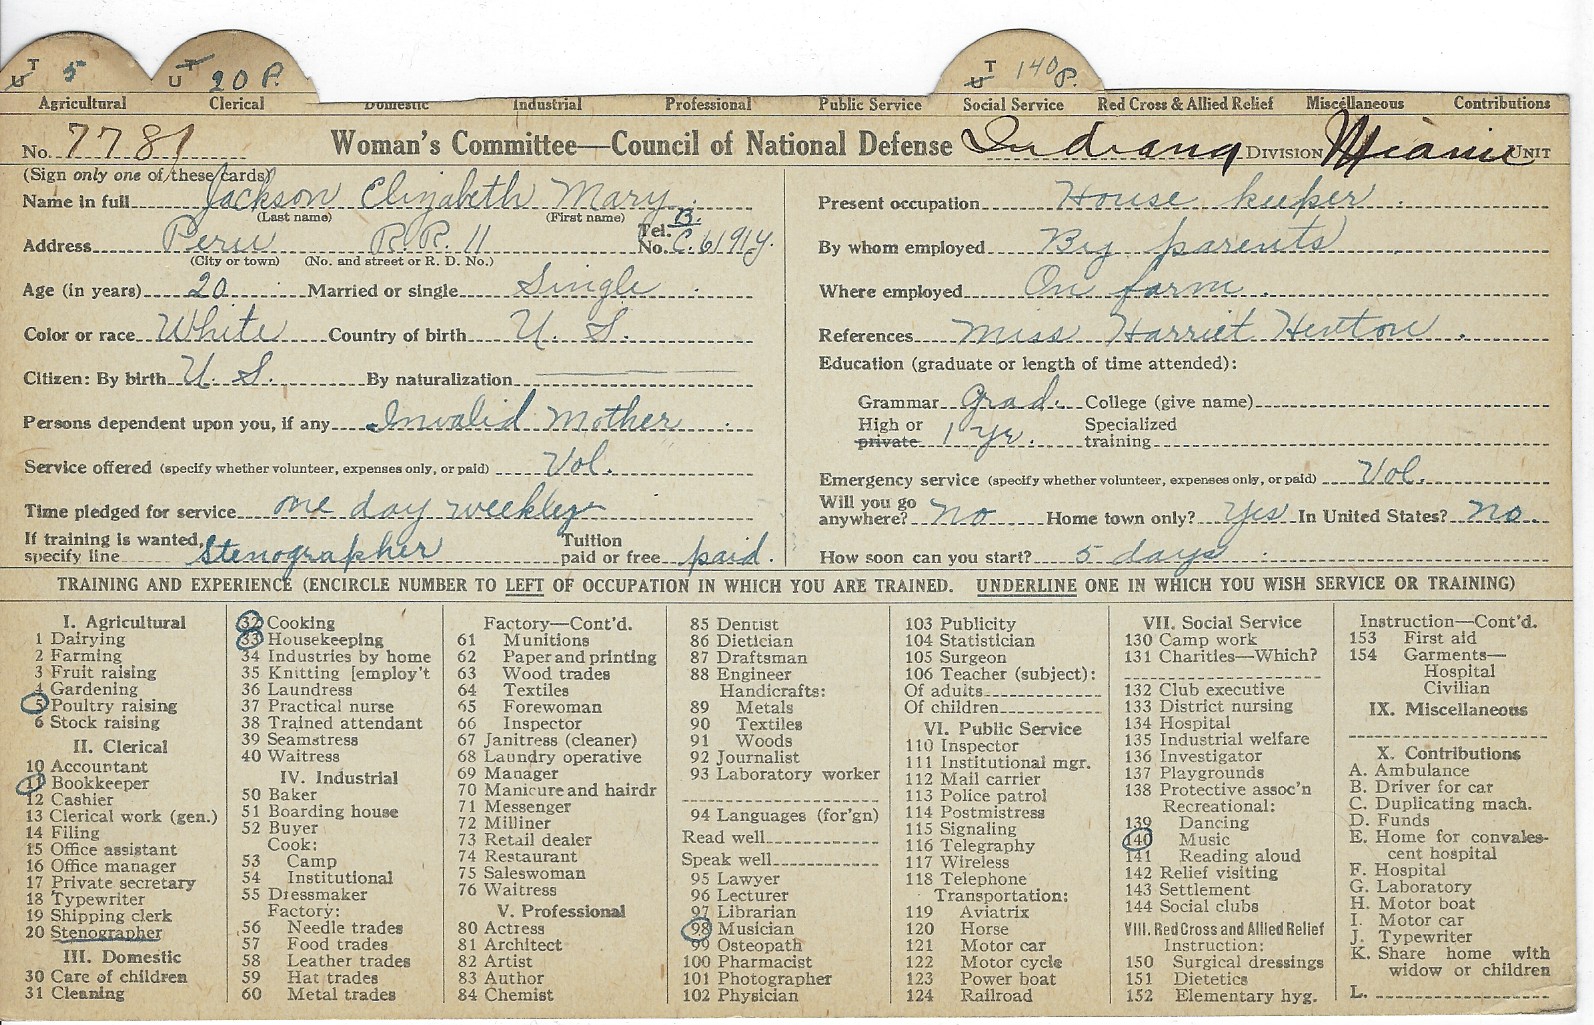 T U 5 T U 20 P. T U 140 P.
Agricultural Clerical Domestic Industrial Professional Public Service Social Service Red Cross & Allied Relief Miscellaneous Contributions
No. 7781 Woman's Committee—Council of National Defense Indiana DIVISION Miami UNIT
(Sign only one of these cards)
Name in full Jackson Elizabeth Mary
(Last name) (First name)
Address Peru R.R. 11 Tel. No. B. C. 6191y.
(City or town) (No. and street or R. D. No.)
Age (in years) 20 Married or single Single
Color or race White Country of birth U. S.
Citizen: By birth U. S. By naturalization
Persons dependent upon you, if any Invalid Mother
Service offered (specify whether volunteer, expenses only, or paid) Vol.
Time pledged for service one day weekley
If training is wanted, specify line Stenographer Tuition paid or free paid.
Present occupation House keeper.
By whom employed By parents
Where employed On farm.
References Miss Harriet Hinton.
Education (graduate or length of time attended):
Grammar Grad. College (give name)
High or private 1 yr. Specialized training
Emergency service (specify whether volunteer, expenses only, or paid) Vol.
Will you go anywhere? No Home town only? Yes In United States? No.
How soon can you start? 5 days
TRAINING AND EXPERIENCE (ENCIRCLE NUMBER TO LEFT OF OCCUPATION IN WHICH YOU ARE TRAINED. UNDERLINE ONE IN WHICH YOU WISH SERVICE OR TRAINING)
I. Agricultural
1 Dairying
2 Farming
3 Fruit raising
4 Gardening
5 Poultry raising
6 Stock raising
II. Clerical
10 Accountant
11 Bookkeeper
12 Cashier
13 Clerical work (gen.)
14 Filing
15 Office assistant
16 Office manager
17 Private secretary
18 Typewriter
19 Shipping clerk
20 Stenographer
III. Domestic
30 Care of children
31 Cleaning
32 Cooking
33 Housekeeping
34 Industries by home
35 Knitting [employ't
36 Laundress
37 Practical nurse
38 Trained attendant
39 Seamstress
40 Waitress
IV. Industrial
50 Baker
51 Boarding house
52 Buyer
Cook:
53 Camp
54 Institutional
55 Dressmaker
Factory:
56 Needle trades
57 Food trades
58 Leather trades
59 Hat trades
60 Metal trades
Factory—Cont'd.
61 Munitions
62 Paper and printing
63 Wood trades
64 Textiles
65 Forewoman
66 Inspector
67 Janitress (cleaner)
68 Laundry operative
69 Manager
70 Manicure and hairdr
71 Messenger
72 Milliner
73 Retail dealer
74 Restaurant
75 Saleswoman
76 Waitress
V. Professional
80 Actress
81 Architect
82 Artist
83 Author
84 Chemist
85 Dentist
86 Dietician
87 Draftsman
88 Engineer
Handicrafts:
89 Metals
90 Textiles
91 Woods
92 Journalist
93 Laboratory worker
94 Languages (for'gn)
Read well
Speak well
95 Lawyer
96 Lecturer
97 Librarian
98 Musician
99 Osteopath
100 Pharmacist
101 Photographer
102 Physician
103 Publicity
104 Statistician
105 Surgeon
106 Teacher (subject):
Of adults
Of children
VI. Public Service
110 Inspector
111 Institutional mgr.
112 Mail carrier
113 Police patrol
114 Postmistress
115 Signaling
116 Telegraphy
117 Wireless
118 Telephone
Transportation:
119 Aviatrix
120 Horse
121 Motor car
122 Motor cycle
123 Power boat
124 Railroad
VII. Social Service
130 Camp work
131 Charities—Which?
132 Club executive
133 District nursing
134 Hospital
135 Industrial welfare
136 Investigator
137 Playgrounds
138 Protective assoc'n
Recreational:
139 Dancing
140 Music
141 Reading aloud
142 Relief visiting
143 Settlement
144 Social clubs
VIII. Red Cross and Allied Relief
Instruction:
150 Surgical dressings
151 Dietetics
152 Elementary hyg.
Instruction—Cont'd.
153 First aid
154 Garments—
Hospital
Civilian
IX. Miscellaneous
X. Contributions
A. Ambulance
B. Driver for car
C. Duplicating mach.
D. Funds
E. Home for convales-
cent hospital
F. Hospital
G. Laboratory
H. Motor boat
I. Motor car
J. Typewriter
K. Share home with
widow or children
L.